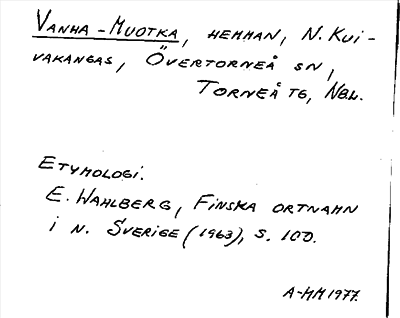 VANHA-MUOTKA, HEMMAN, N. KUI-
VAKANGAS, ÖVERTORNEÅ SN,
TORNEÅ TG, NBL.
ETYMOLOGI.
E. WAHLBERG, FINSKA ORTNAMN
I N. SVERIGE (1963), S. 100.
A-MM 1977.